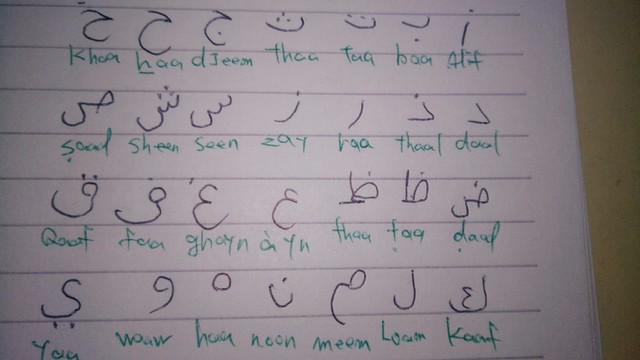 أ ب ت ث ج ح خ
Khaa ẖaa dJeem thaa taa baa Alif
د ذ ر ز س ش ص
ṣaad sheen seen zay raa thaal daal
ض ط ظ ع غ ف ق
Qaaf faa ghayn àyn thaa ṭaa ḍaad
ك ل م ن ه و ي
Yaa waaw haa noon meem Laam Kaaf